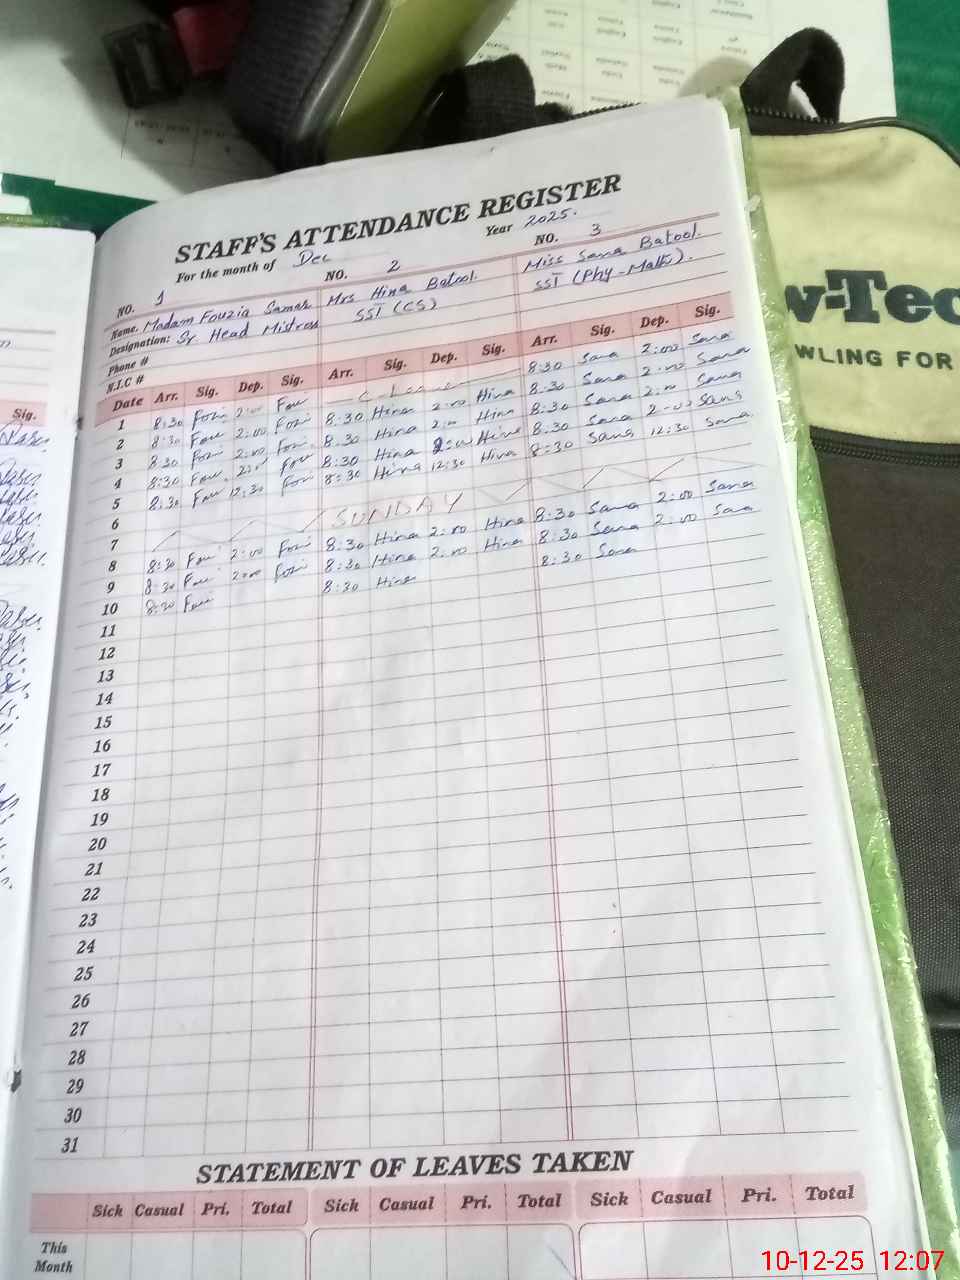 STAFF'S ATTENDANCE REGISTER
For the month of Dec Year 2025.
NO. 1 NO. 2 NO. 3
Name. Madam Fouzia Mrs Hina Batool. Miss Sana Batool.
Designation: Sr. Head Mistress SST (CS) SST (Phy-Math).
Phone #
N.I.C #
Date Arr. Sig. Dep. Sig. Arr. Sig. Dep. Sig. Arr. Sig. Dep. Sig.
1 8:30 Fozi 2:00 Fou 8:30 Sana 2:00 Sana
2 8:30 Fou 2:00 Fozi 8:30 Hina 2:00 Hina 8:30 Sana 2:00 Sana
3 8:30 Fozi 2:00 Fozi 8:30 Hina 2:00 Hina 8:30 Sana 2:00 Sana
4 8:30 Fou 2:00 Fou 8:30 Hina 2:00 Hina 8:30 Sana 2:00 Sana
5 8:30 Fou 12:30 Fozi 8:30 Hina 12:30 Hina 8:30 Sana 12:30 Sana
6
7 SUNDAY
8 8:30 Fou 2:00 Fozi 8:30 Hina 2:00 Hina 8:30 Sana 2:00 Sana
9 8:30 Fou 2:00 Fozi 8:30 Hina 2:00 Hina 8:30 Sana 2:00 Sana
10 8:30 Fou 8:30 Hina 8:30 Sana
11
12
13
14
15
16
17
18
19
20
21
22
23
24
25
26
27
28
29
30
31
STATEMENT OF LEAVES TAKEN
Sick Casual Pri. Total Sick Casual Pri. Total Sick Casual Pri. Total
This
Month
Sig.
w-Tec
WLING FOR
10-12-25 12:07